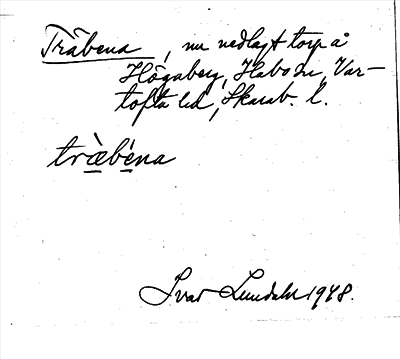 Träbena, nu nedlagt torp å
Högaberg, Habo sn, Var-
tofta hd, Skarab. l.
træ̀béna
Ivar Lundahl 1948.